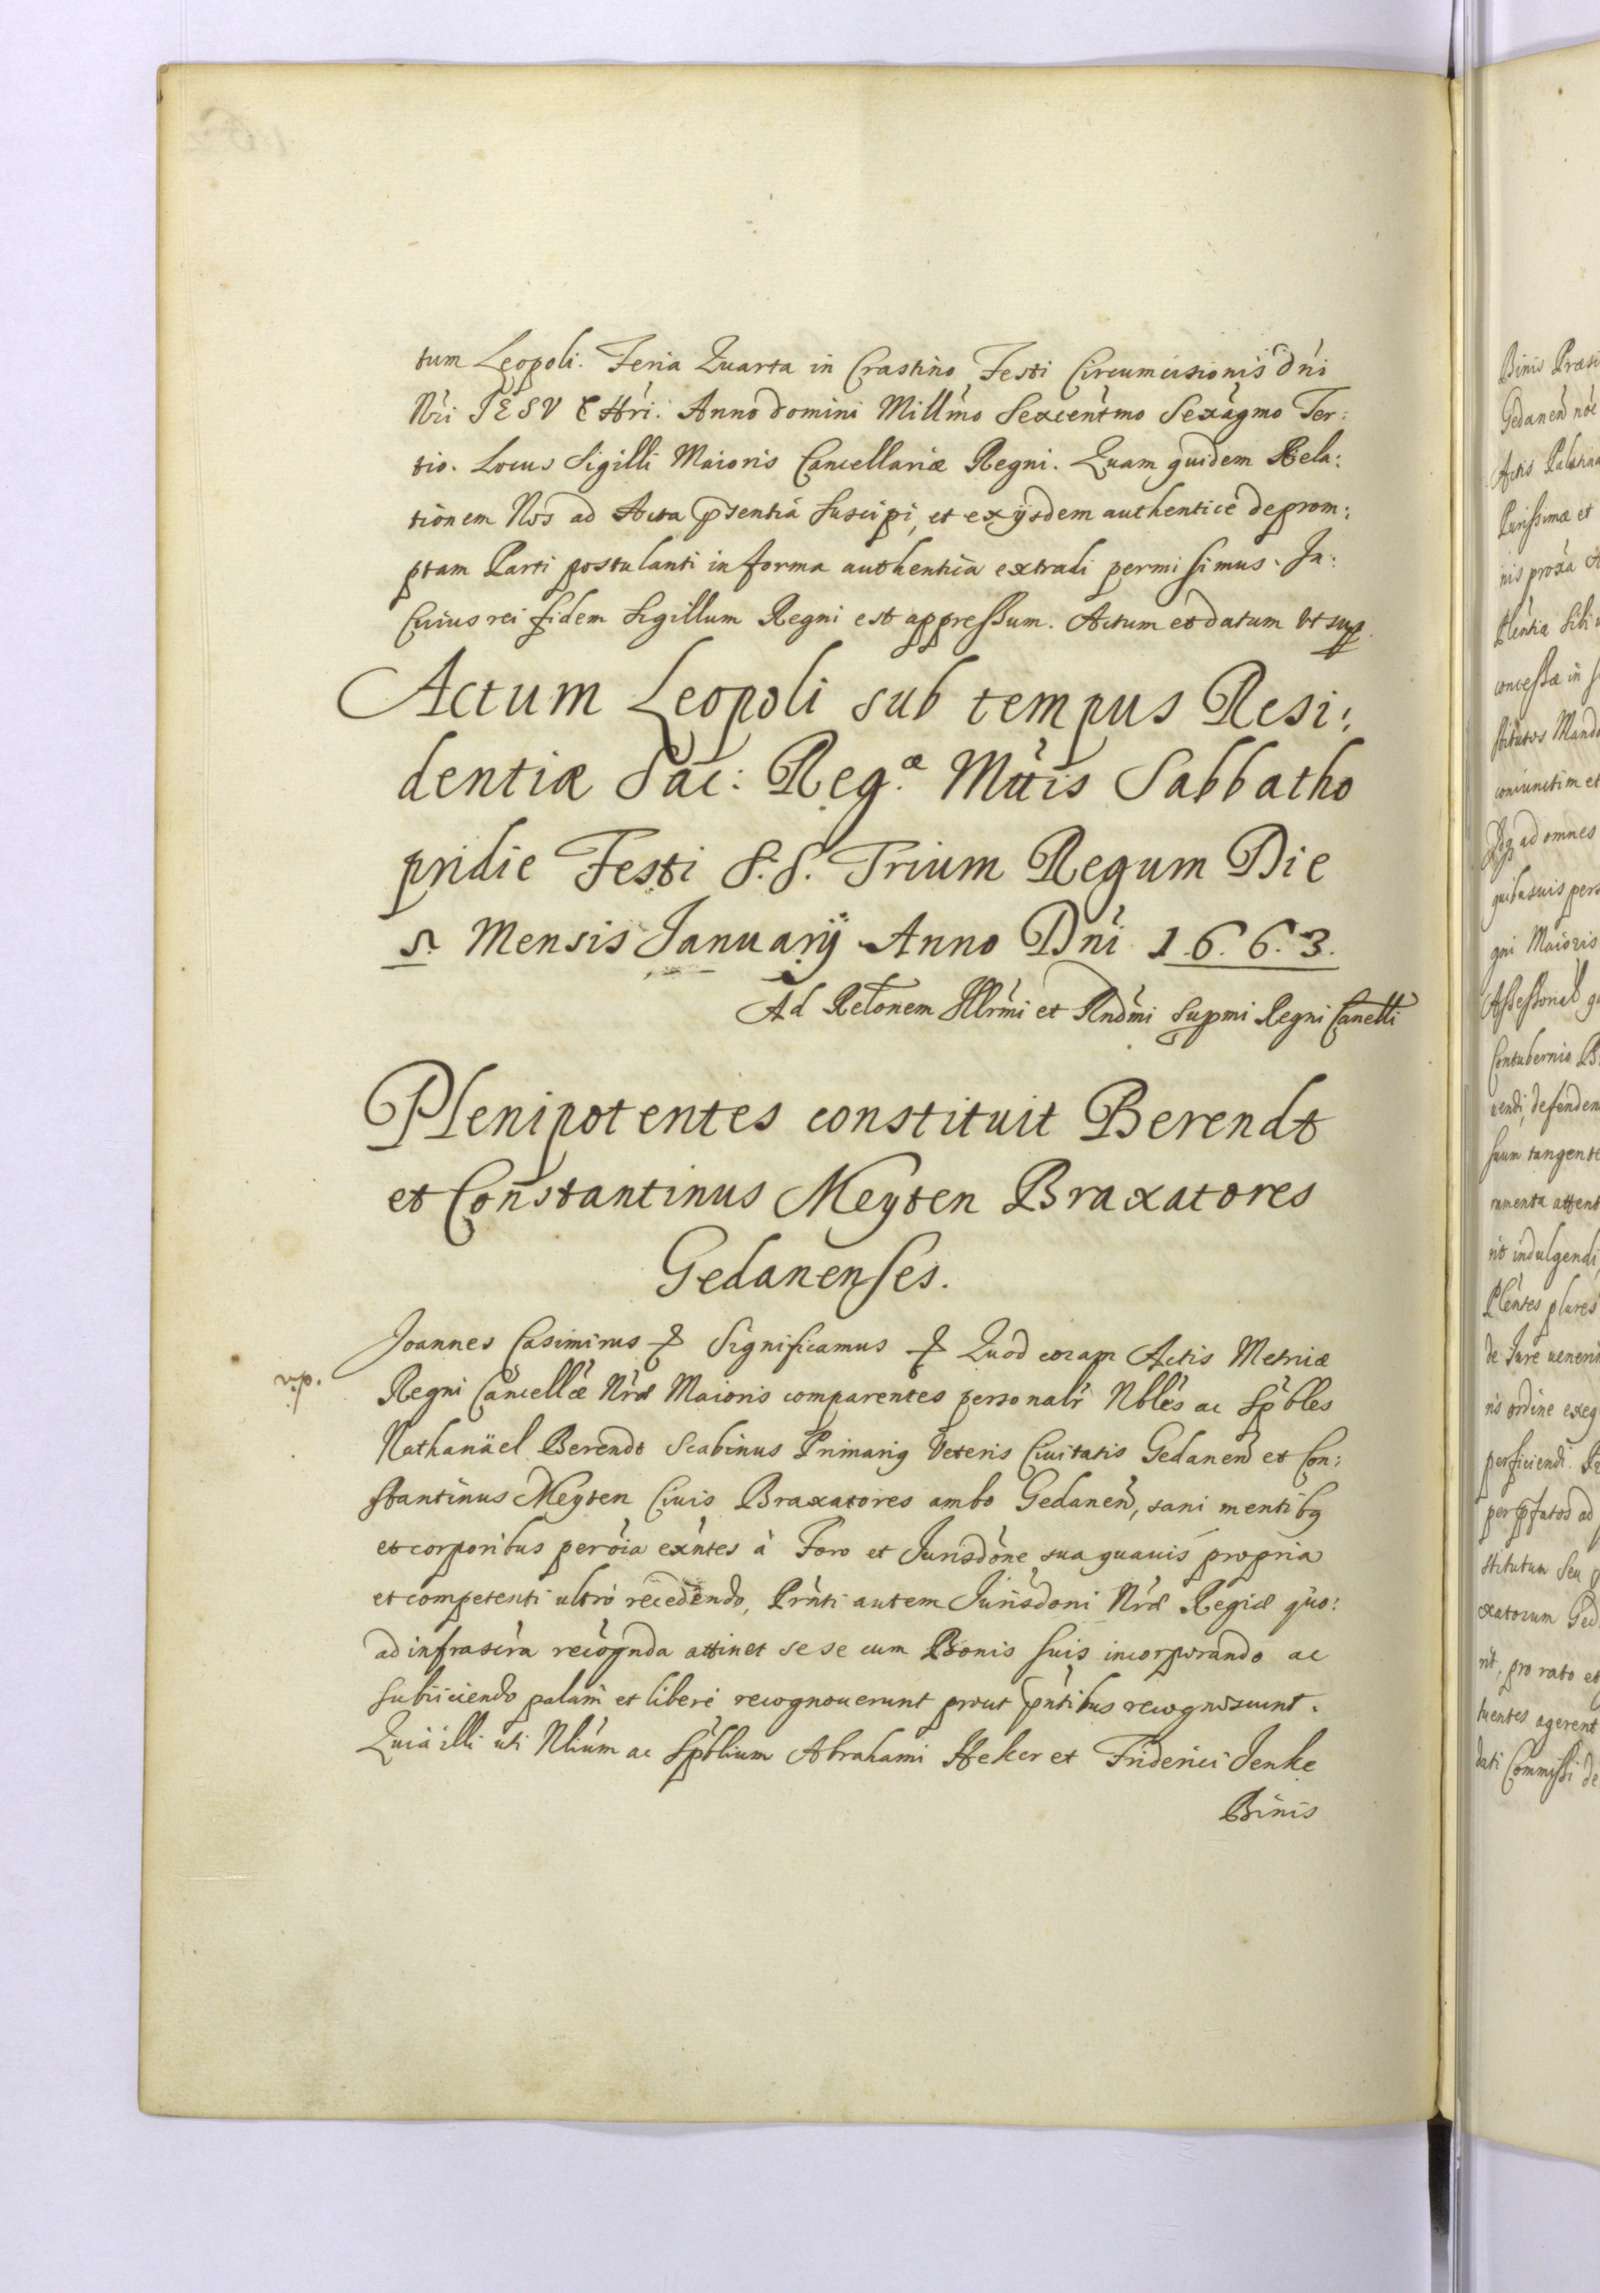 tum Leopoli. Feria Quarta in Crastino Festi Circumcisionis Dni
Nri IESV CHri. Anno Domini Millmo Sexcentmo Sexagmo Ter:
tio. Locus Sigilli Maioris Cancellariæ Regni. Quam quidem Rela:
tionem Nos ad Acta psentia suscipi, et ex ijsdem authentice deprom:
ptam Parti postulanti in forma authentica extradi permisimus. In:
Cuius rei fidem Sigillum Regni est appressum. Actum et datum Vt sup.
Actum Leopoli sub tempus Resi:
dentiæ Sac: Regæ Mttis Sabbatho
pridie Festi S.S. Trium Regum Die
5. Mensis Januarij Anno Dni 1.6.6.3.
Ad Relonem Illrmi et Rndmi Supmi Regni Cancelli
Plenipotentes constituit Berendt
et Constantinus Meyten Braxatores
Gedanenses.
Joannes Casimirus & Significamus & Quod coram Actis Metricæ
Regni Cancellæ Nræ Maioris comparentes personalr Nbles ac Spbles
Nathanäel Berendt Scabinus Primarius Veteris Ciuitatis Gedanen et Con:
stantinus Meyten Ciuis Braxatores ambo Gedanen, sani mentibus
et corporibus per oia exntes à Foro et Jurisdone sua quauis propria
et competenti ultro recedendo, Prnti autem Jurisdoni Nræ Regiæ quo:
ad infrascra recognda attinet se se cum Bonis suis incorporando ac
subiiciendo palam et libere recognouerunt prout pntibus recognoscunt.
Quia illi uti Nlium ac Spblium Abrahami Heker et Friderici Jenke
Binis
v.p.
Binis
Gedanen noe
concessæ in
coniunctim et
ad omnes
gni Maioris
Contubernio
defenden
tangente
rit indulgendi,
Plentes plures
de Jure
ris ordine
perficiendi.
stitutum seu
xatorum Ged
rit, pro rato et
agerent
dati Commissi de